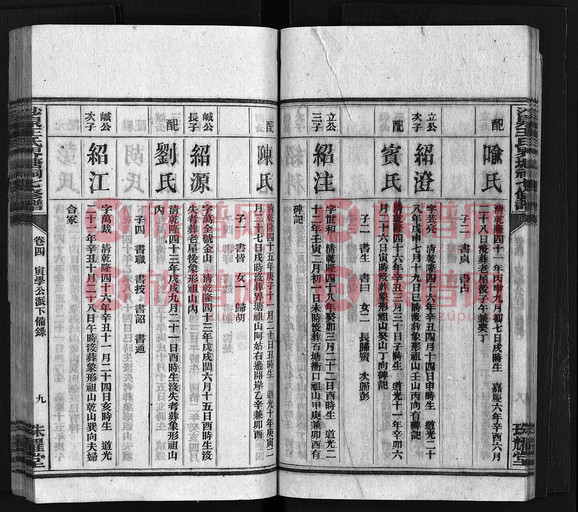 配
喩氏
清乾隆四十一年丙申九月初七日戌時生 嘉慶六年辛酉六月
二十八日歿葬老屋後子午兼癸丁
子二 書貞 書占
立公
次子
紹澄
字芸亮 清乾隆四十六年辛丑四月十四日申時生 道光二十
八年戊申七月十九日巳時歿葬象形祖山壬山丙向有碑記
配
賓氏
清乾隆四十六年辛丑三月三十日子時生 道光十一年辛卯六
月二十六日寅時歿葬象形祖山癸山丁向碑記
子二 書生 書曰 女二 長歸 次歸彭
立公
三子
紹注
字世和 清乾隆四十八年癸卯三月二十二日丑時生 道光二
十二年壬寅二月初一日未時歿葬石塘衝口祖山甲庚兼卯酉有
碑記
配
陳氏
清乾隆四十五年庚子十一月二十日丑時生 道光十年庚寅二
月二十七日戌時歿葬界塘祖山阿姑石過圳岸乙辛兼卯酉
子一 書皆 女一 歸胡
緘公
長子
紹源
字萬全號金山 清乾隆四十三年戊戌閏六月十五日酉時生歿
失考葬老屋後象形祖山內
配
劉氏
清乾隆四十三年戊戌九月二十一日酉時生歿失考葬象形祖山
內
子四 書職 書按 書詔 書通
緘公
次子
紹江
字萬裁 清乾隆四十六年辛丑十一月二十四日亥時生 道光
二十一年辛丑十月二十八日午時歿葬象形祖山乾山巽向夫婦
合冢
卷四 寅學公派下備錄
九
珠耀堂